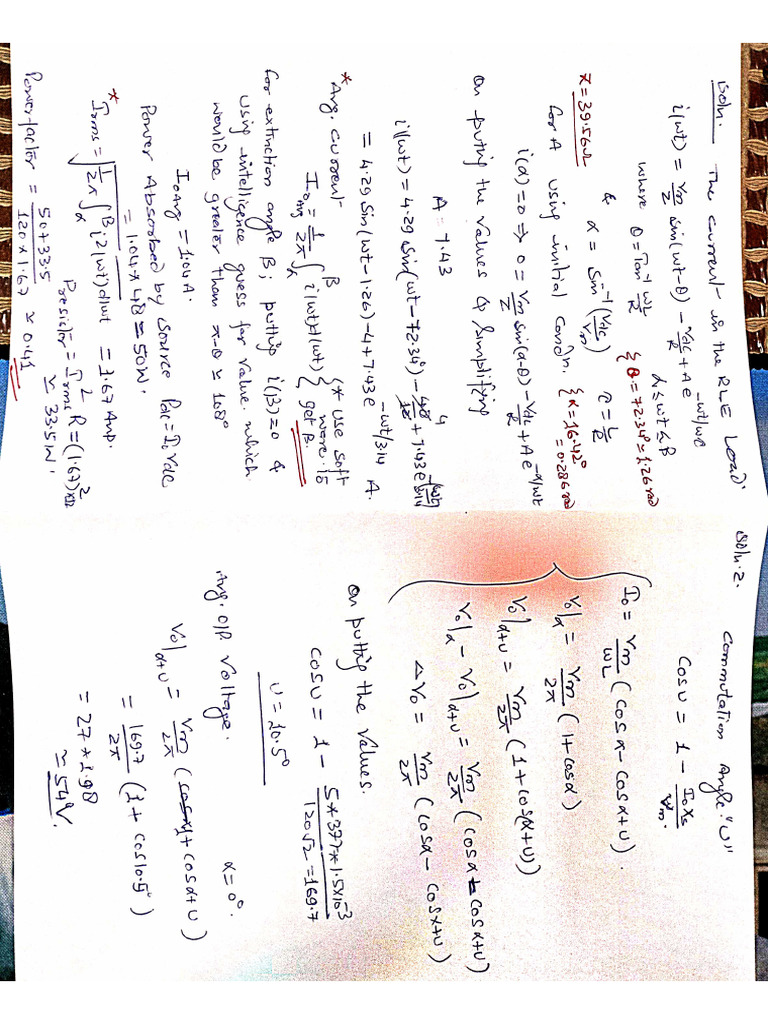 Soln. The current in the RLE Load.
i(ωt) = Vm/Z sin(ωt-θ) - Vdc/R + A e^-ωt/ωτ
α ≤ ωt ≤ β
where θ = Tan⁻¹ ωL/R { θ = 72.34° = 1.26 rad
& α = Sin⁻¹(Vdc/Vm) τ = L/R
Z = 39.56Ω
for A using initial condn. { α = 16.42° = 0.286 rad
i(α) = 0 ⇒ 0 = Vm/Z sin(α-θ) - Vdc/R + A e^-α/ωτ
on puting the values & simplifying
A = 7.43
i(ωt) = 4.29 sin(ωt - 72.34°) - 48/12 4 + 7.43 e^-(ωt)/3.14
= 4.29 sin(ωt - 1.26) - 4 + 7.43 e^-ωt/3.14 A.
* Avg. current
I₀Avg = 1/2π ∫α^β i(ωt)d(ωt) { * use soft ware to get β.
for extinction angle β; putting i(β)=0 &
using intelligence guess for value which
would be greater than π-θ ≃ 108°
I₀Avg = 1.04 A.
Power Absorbed by source Pdc = I₀Vdc
= 1.04 * 48 = 50W.
* Irms = √1/2π ∫α^β i²(ωt)dωt = 1.67 Amp.
Presistor = I²rms R = (1.67)² * 12
≃ 33.5W.
Power factor = 50+33.5/120*1.67 ≃ 0.41
Soln.2. Commutation Angle "υ"
cosυ = 1 - I₀Xs/Vm.
I₀ = Vm/ωL (cosα - cosα+υ).
V₀|α = Vm/2π (1+cosα)
V₀|α+υ = Vm/2π (1+cos(α+υ))
V₀|α - V₀|α+υ = Vm/2π (cosα - cosα+υ)
ΔV₀ = Vm/2π (cosα - cosα+υ)
on putting the values.
cosυ = 1 - 5*377*1.5x10⁻³/120√2 = 169.7
υ = 10.5°
Avg. O/P Voltage. α = 0°.
V₀|α+υ = Vm/2π (cosα + cosα+υ)
= 169.7/2π (1 + cos10.5°)
= 27 * 1.98
≃ 54V.